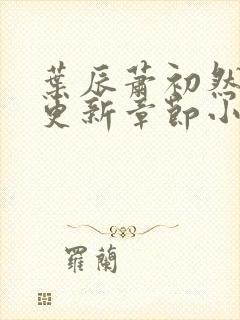 葉辰蕭初然
更新章節小
羅蘭